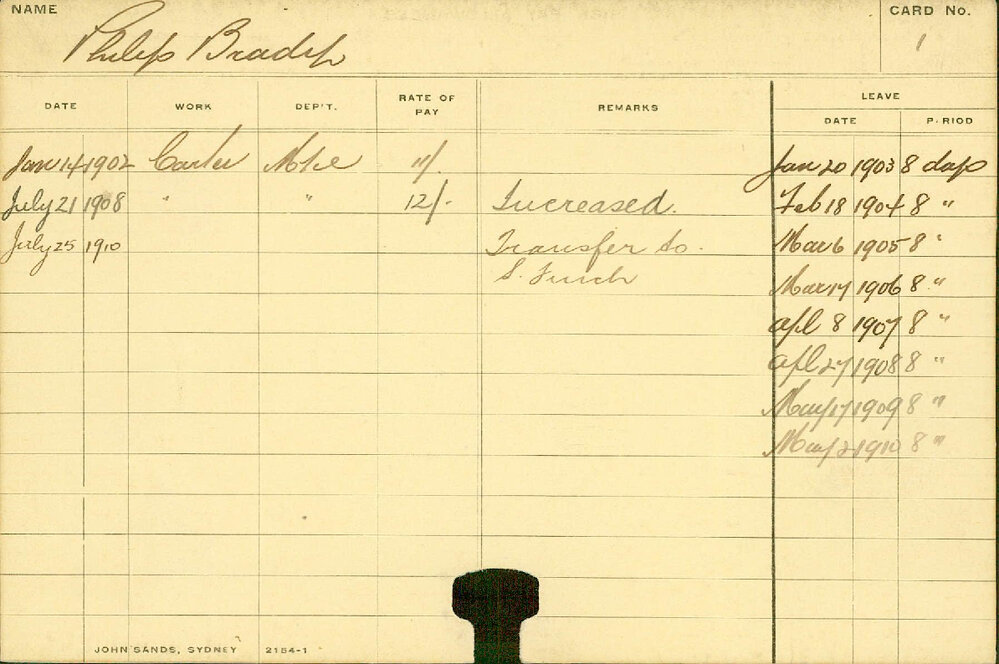 NAME
CARD No.
Philip Brady
1
DATE WORK DEP'T. RATE OF PAY REMARKS LEAVE
DATE P RIOD
Jan 14 1902 Carter 11/. Jan 20 1903 8 days
July 21 1908 " " 12/- Increased. Feb 18 1904 8 "
July 25 1910 Transfer to Mar 6 1905 8 "
S. Mar 17 1906 8 "
Apl 8 1907 8 "
Apl 27 1908 8 "
May 17 1909 8 "
May 2 1910 8 "
JOHN SANDS, SYDNEY 2154-1